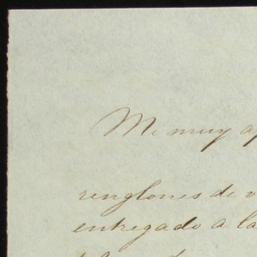 Mi muy a
renglones de v
entregado a la